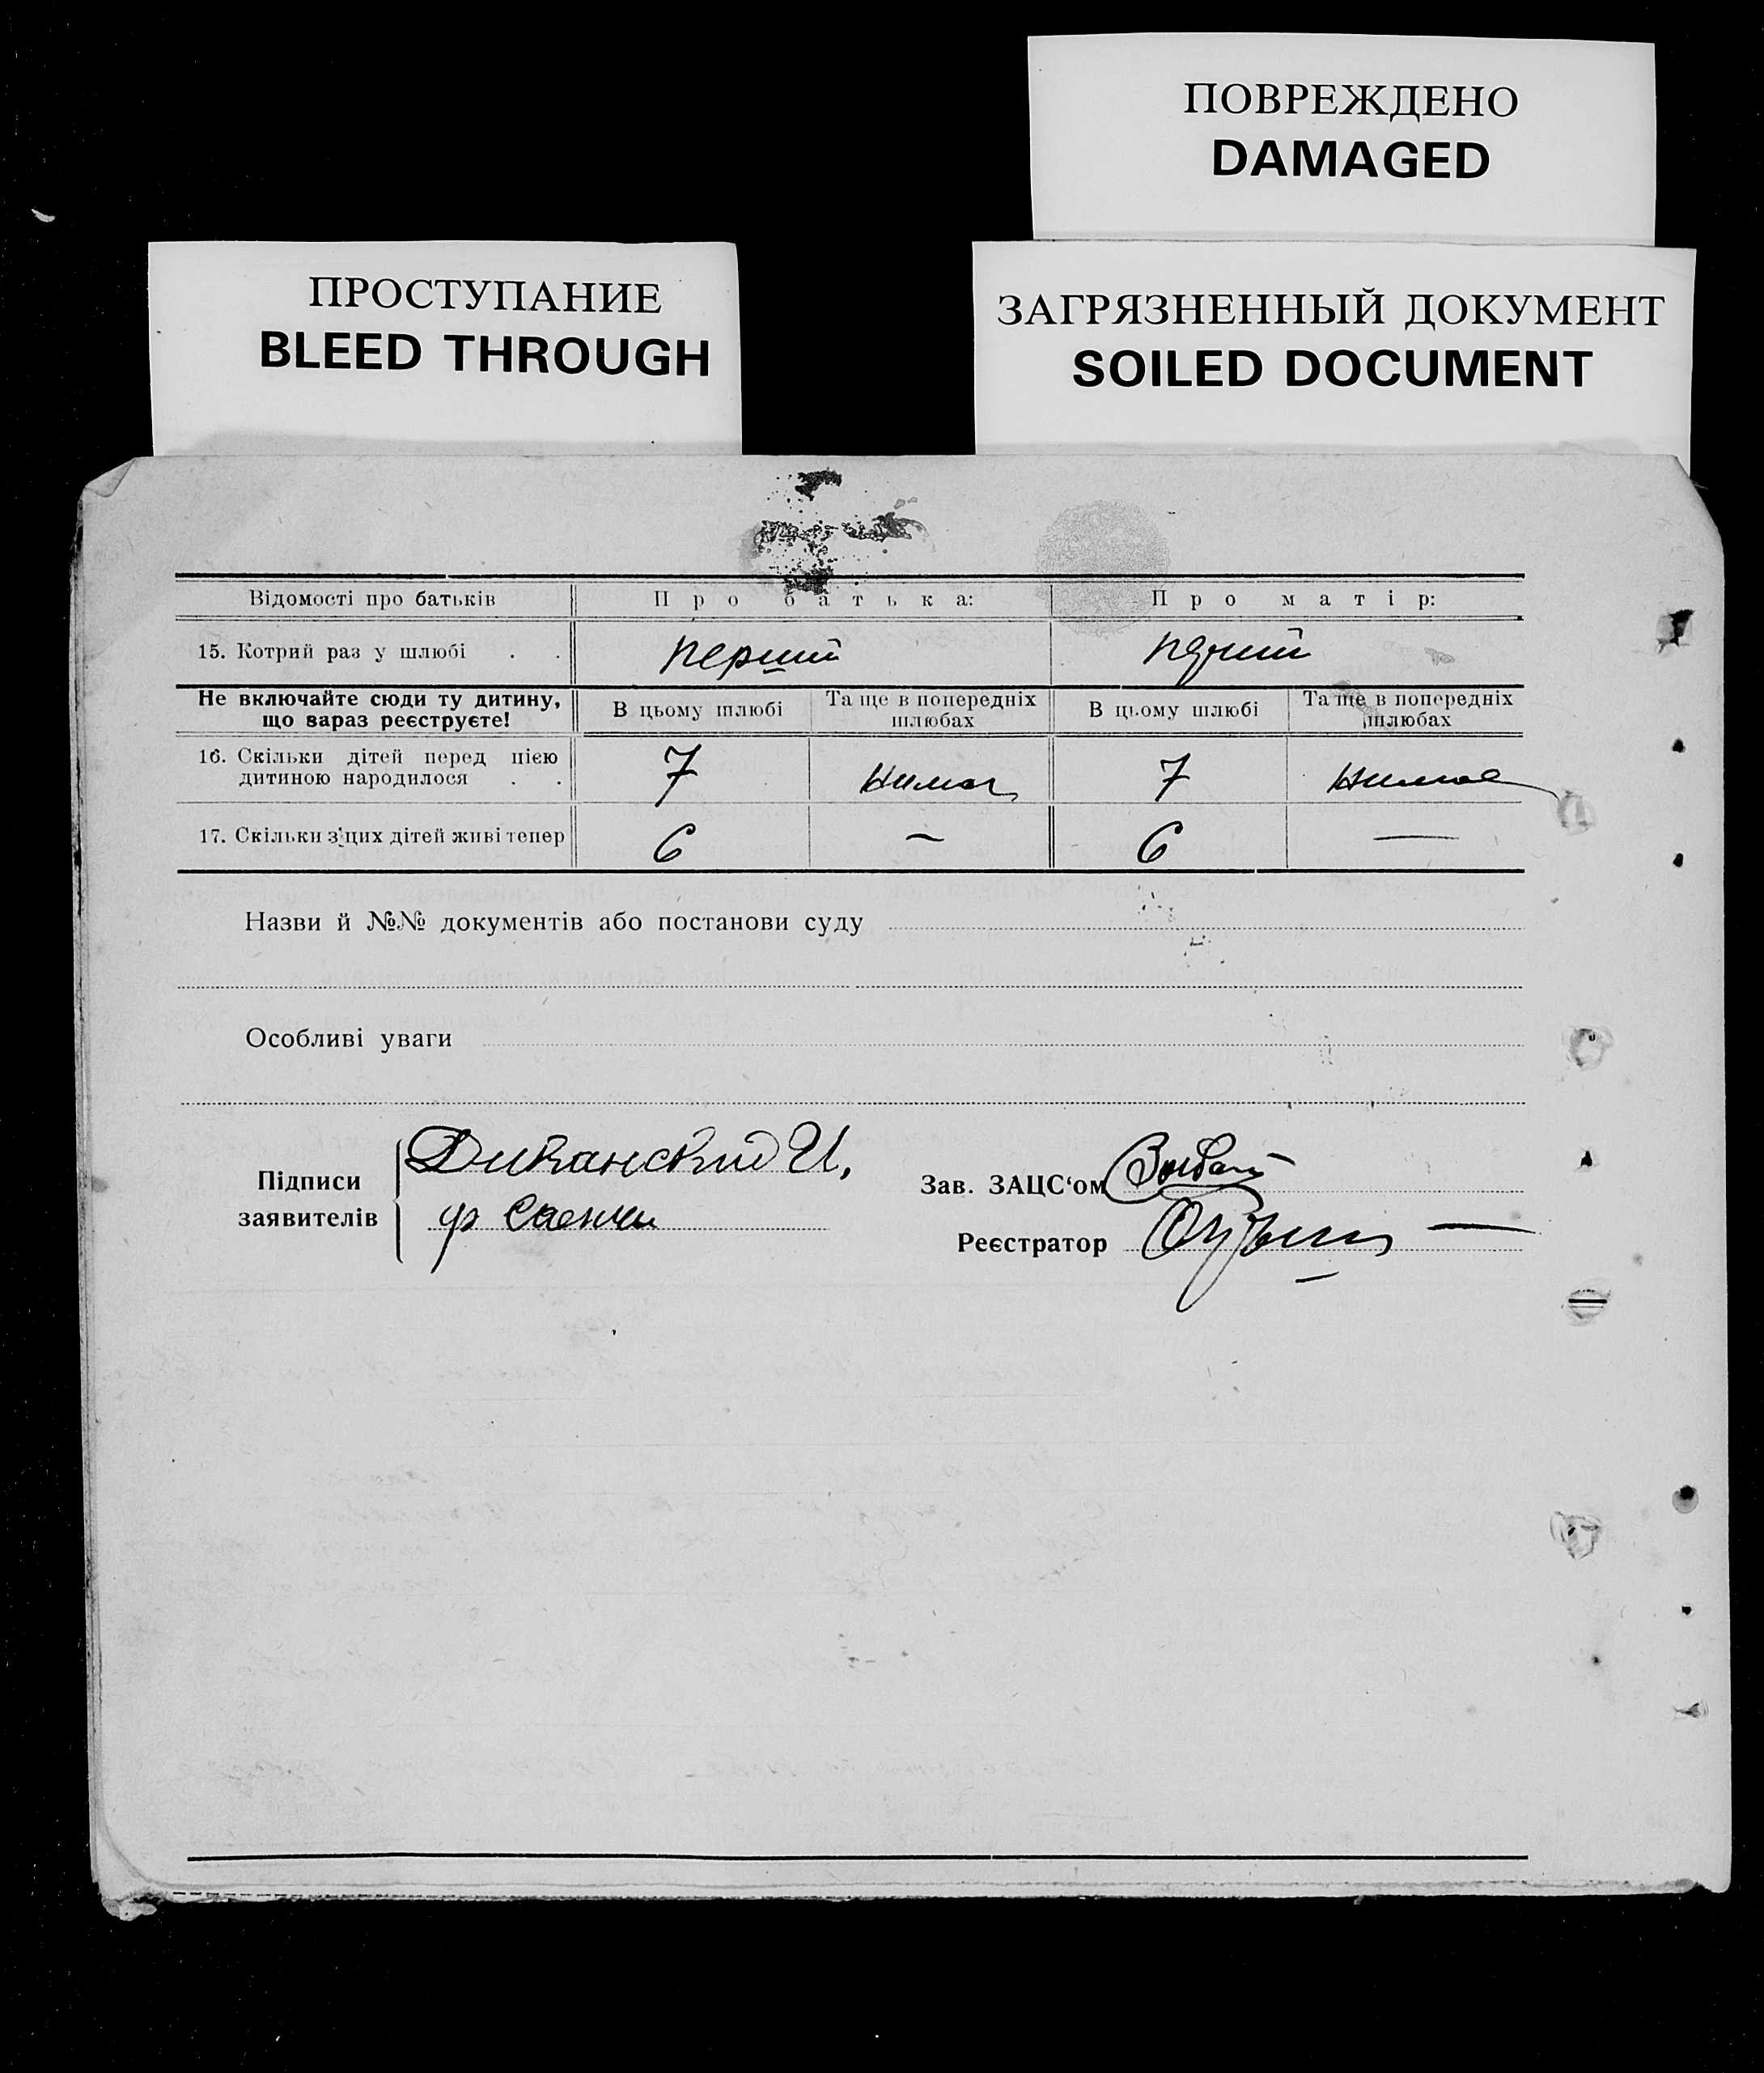 ПОВРЕЖДЕНО
DAMAGED
ПРОСТУПАНИЕ
BLEED THROUGH
ЗАГРЯЗНЕННЫЙ ДОКУМЕНТ
SOILED DOCUMENT
Відомості про батьків Про батька: Про матір:
15. Котрий раз у шлюбі . . перший
Не включайте сюди ту дитину, що вараз реєструєте! В цьому шлюбі Та ще в попередніх шлюбах В цьому шлюбі Та ще в попередніх шлюбах
16. Скільки дітей перед цією
дитиною народилося . . 7 7
17. Скільки з'цих дітей живі тепер 6 — 6 —
Назви й №№ документів або постанови суду
Особливі уваги
Підписи
заявителів
Диканский И,
Зав. ЗАЦС‘ом
Реєстратор